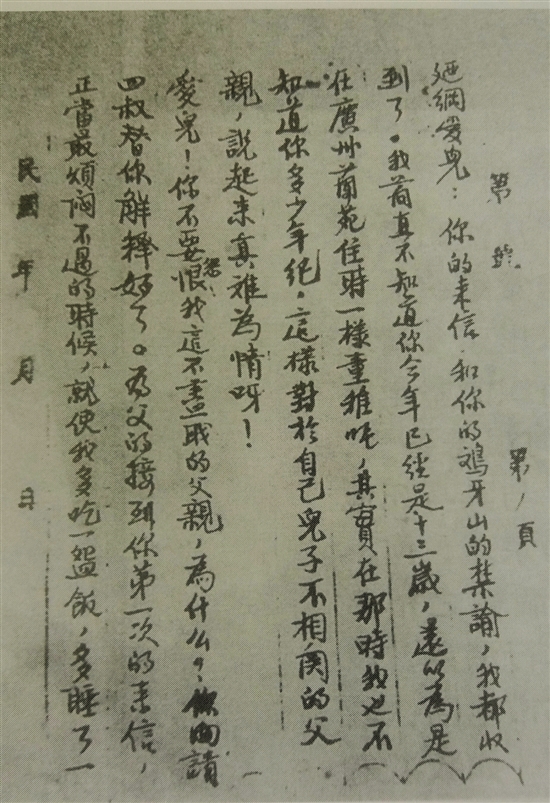 第 號
第1頁
綱愛兒：你的来信和你的牙山的禁諭，我都收
到了。我簡真不知道你今年已經是十三歲，還以為是
在廣州蘭苑住時一樣童稚呢，其實在那時我也不
知道你多少年紀。這樣對於自己兒子不相関的父
親，說起来真难為情呀！
愛兒！你不要怨恨我這不盡職的父親，為什么？你回請
四叔替你解釋好了。為父的接到你第一次的来信，
正當最煩闷不過的時候，就使我多吃一盌飯，多睡了一
民國 年 月 日